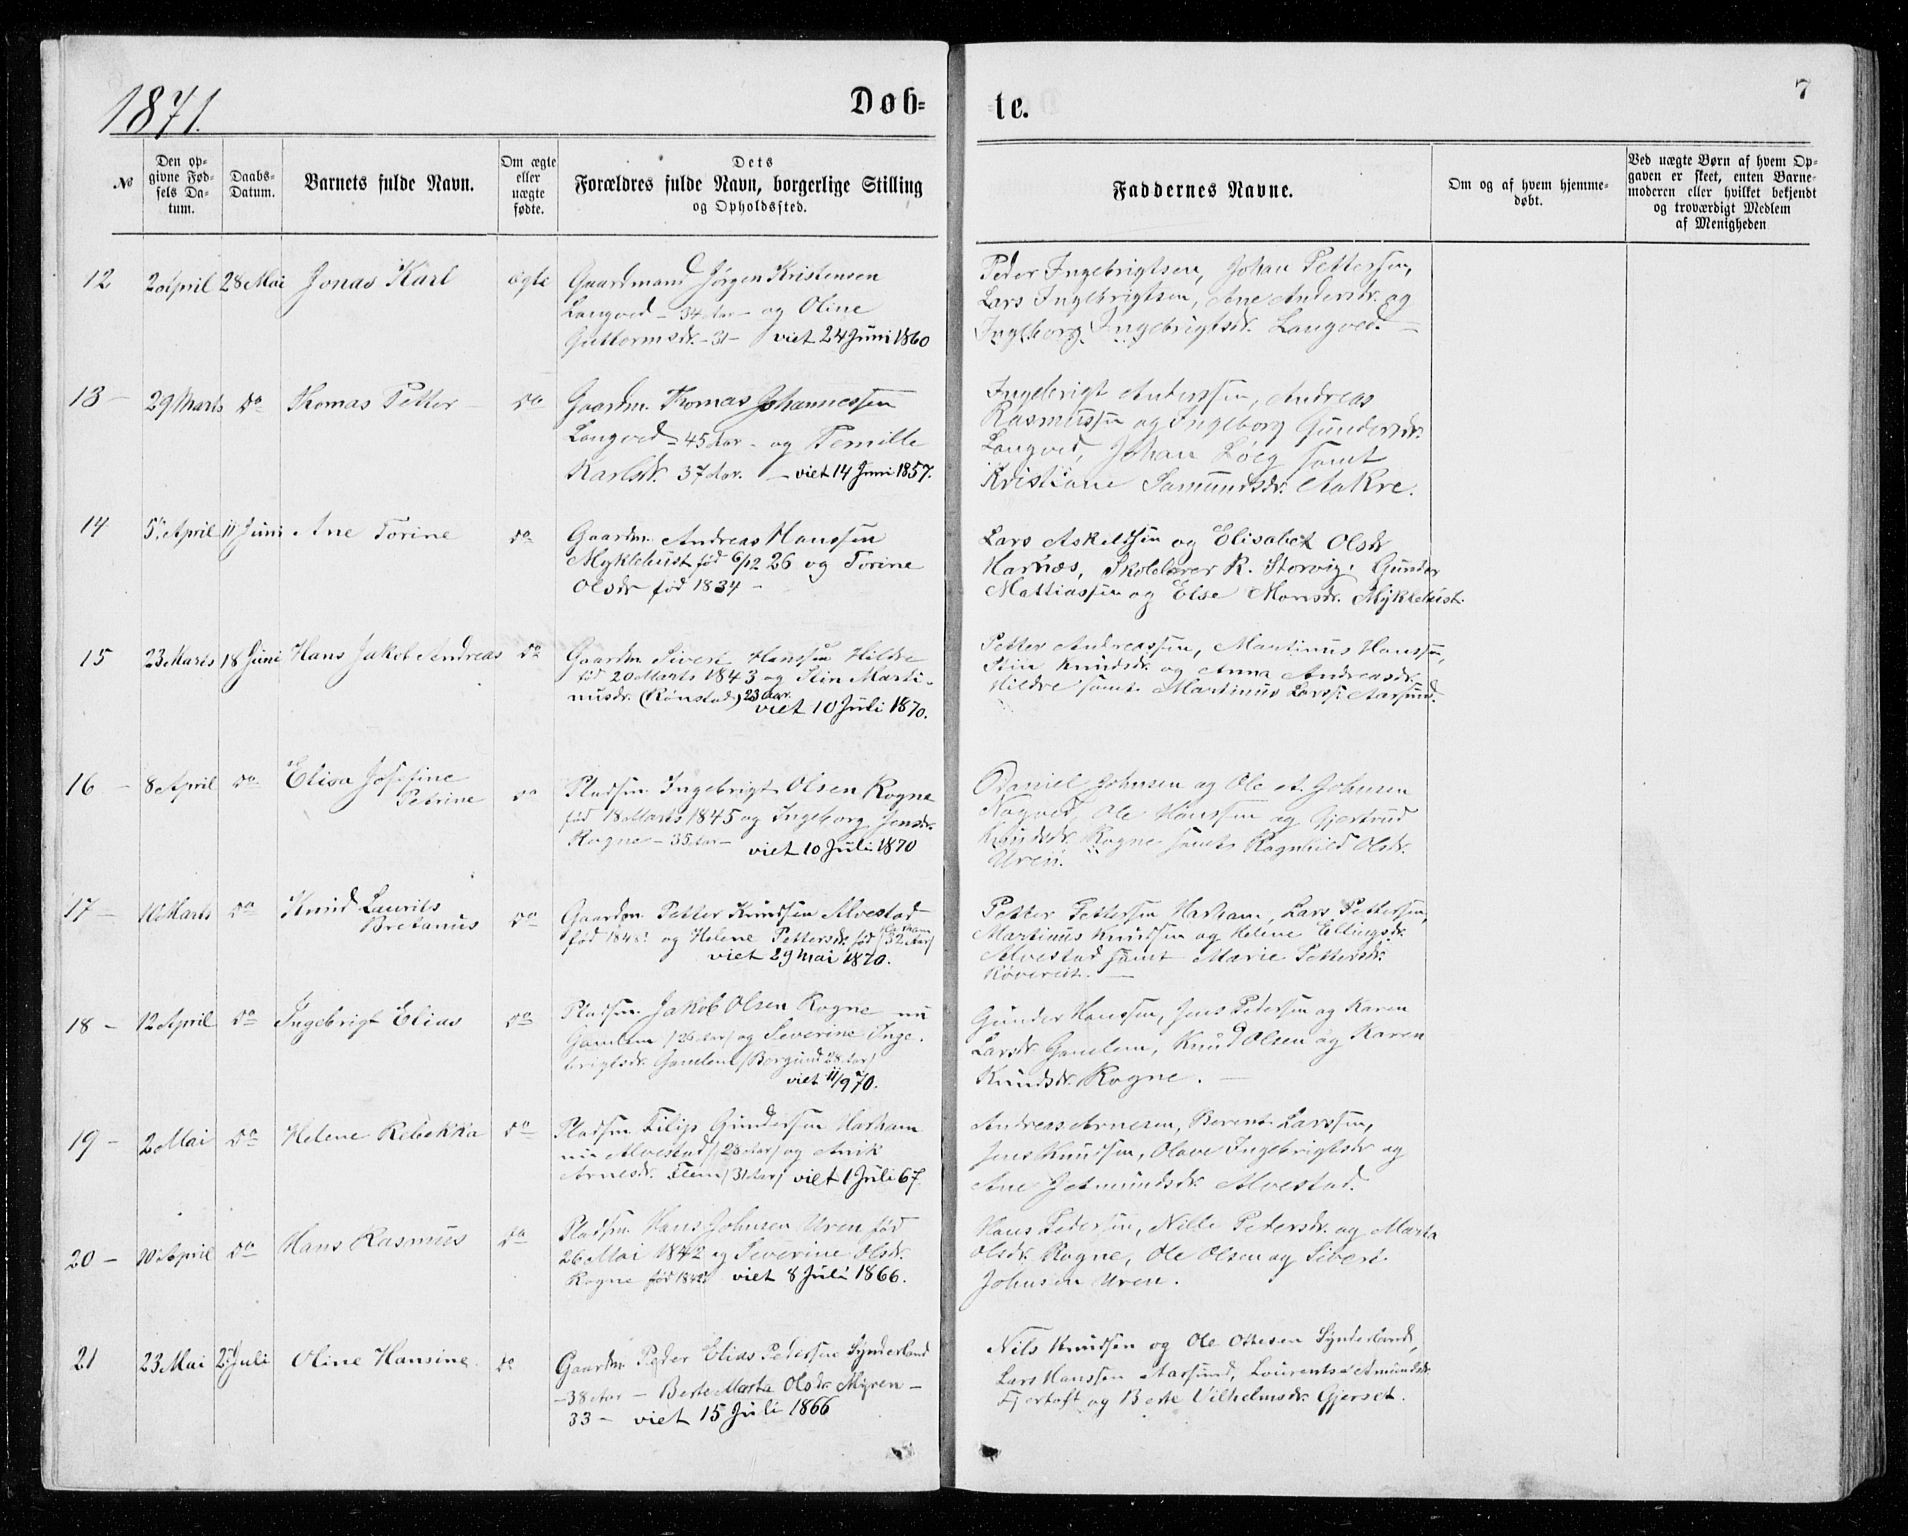 1871.
Døb-
te.
7
№
Den op-
givne Fød-
sels Da-
tum.
Daabs-
Datum.
Barnets fulde Navn.
Om ægte
eller
uægte
fødte.
Dets
Forældres fulde Navn, borgerlige Stilling
og Opholdssted.
Faddernes Navne.
Om og af hvem hjemme-
døbt.
Ved uægte Børn af hvem Op-
gaven er skeet, enten Barne-
moderen eller hvilket bekjendt
og troværdigt Medlem
af Menigheden
12 2 April 28 Mai Jonas Karl ægte
Gaardmand Jørgen Kristensen
Langved - 34 Aar - og Oline
Guttormsdr. - 31 - viet 24 Juni 1860
Peder Ingebrigtsen, Johan Pettersen,
Lars Ingebrigtsen, Ane Andersdr. og
Ingeborg Ingebrigtsdr. Langved. -
13 - 29 Marts do Thomas Petter do
Gaardm. Thomas Johannessen
Langved - 45 Aar - og Pernille
Karlsdr. 37 Aar. - viet 14 Juni 1857.
Ingebrigt Anderssen, Andreas
Rasmussen og Ingeborg Gundersdr.
Langved, Johan samt
Kristiane Samundsdr. Aakre.
14 5 April 11 Juni Ane Torine do
Gaardm. Andreas Hanssen
Myklebust født 6/12 26 og Torine
Olsdr født 1834 -
Lars Askeldsen og Elisabet Olsdr
Harnæs, Skolelærer R. Storvig, Gunder
Mattiassen og Else Monsdr. Myklebust.
15 23 Marts 18 Juni Hans Jakob Andreas do
Gaardm Sivert Hanssen Hildre
fød 20 Marts 1843 og Stin Marti-
nusdr. (Rønstad) 23 Aar.
viet 10 Juli 1870.
Petter Andreassen, Martinus Hanssen,
Stin Knudsdr. og Anna Andreasdr.
Hildre samt Martinus Larss. Aarsund.
16 - 8 April do Elisa Josefine
Petrine do
Pladsm. Ingebrigt Olsen Rogne
fød 18 Marts 1845 og Ingeborg Jensdr.
Rogne - 35 Aar -
viet 10 Juli 1870
Daniel Johnsen og Ole A. Johnsen
Nogved, Ole Hanssen og Gjertrud
Knudsdr. Rogne samt Ragnhild Olsdr.
Uren.
17 - 10 Marts do Knud Laurits
Bretanus do
Gaardm. Petter Knudsen Alvestad
fød 1848 og Helene Pettersdr. fød Harham
(32 Aar)
viet 29 Mai 1870.
Petter Pettersen Harham, Lars Pettersen,
Martinus Knudsen og Helene Ellingsdr.
Alvestad samt Marie Pettersdr.
Røvereit. -
18 - 12 April do Ingebrigt Elias do
Pladsm. Jakob Olsen Rogne nu
Gamlem (26 Aar) og Severine Inge-
brigtsdr. Gamlem (Borgund 28 Aar)
viet 11/9 70.
Gunder Hanssen, Jens Pedersen og Karen
Larsdr. Gamlem, Knud Olsen og Karen
Knudsdr. Rogne. -
19 - 2 Mai do Helene Rebekka do
Pladsm Filip Gundersen Harham
nu Alvestad (28 Aar) og Anik
Arnesdr. Flem (31 Aar) viet 1 Juli 67.
Andreas Arnesen, Berent Larssen,
Jens Knudsen, Olave Ingebrigtsdr og
Ane Jetmundsdr. Alvestad.
20 - 10 April do Hans Rasmus do
Pladsm. Hans Johnsen Uren fød
26 Mai 1842 og Severine Olsdr.
Rogne født viet 8 Juli 1866.
Hans Pedersen, Nille Petersdr. og Marta
Olsdr. Rogne, Ole Olsen og Sivert
Johnsen Uren.
21 23 Mai 2 Juli Oline Hansine do
Gaardm. Peder Elias Pedersen Synderland
- 38 Aar - Berte Marta Olsdr. Myren -
33 - viet 15 Juli 1866
Nils Knudsen og Ole Ottesen Synderland,
Lars Hanssen Aarsund, Laurentse Amundsdr.
Fjørtoft og Berte Vilhelmsdr. Gjerset.